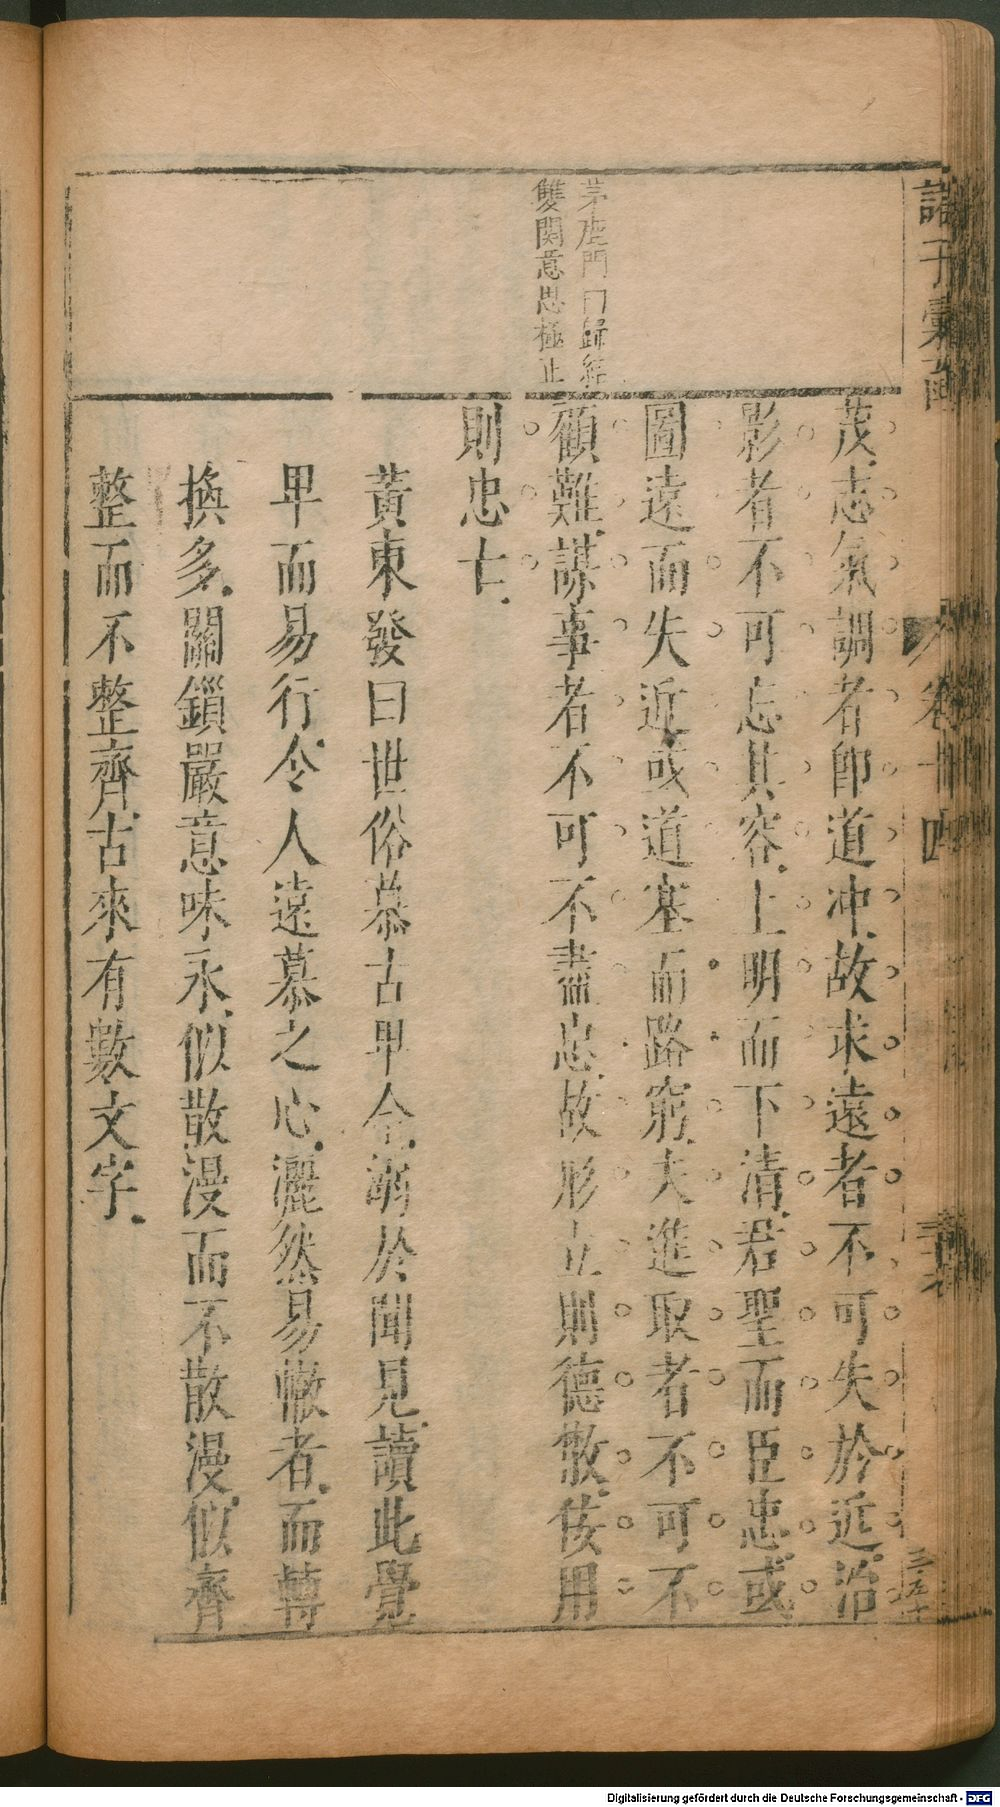 茂志氣調者卽道冲故求遠者不可失於近治
影者不可忘其容上明而下清君聖而臣忠或
圖遠而失近或道塞而路窮大進取者不可不
顧難謀事者不可不盡忠故形立則德散佞用
則忠亡
茅鹿門曰歸結
雙関意思極正
黃東發曰世俗慕古卑今溺於聞見讀此覺
卑而易行令人遠慕之心灑然易轍者而轉
換多關鎖嚴意味永似散漫而不散漫似齊
整而不整齊古來有數文字
Digitalisierung gefördert durch die Deutsche Forschungsgemeinschaft - DFG